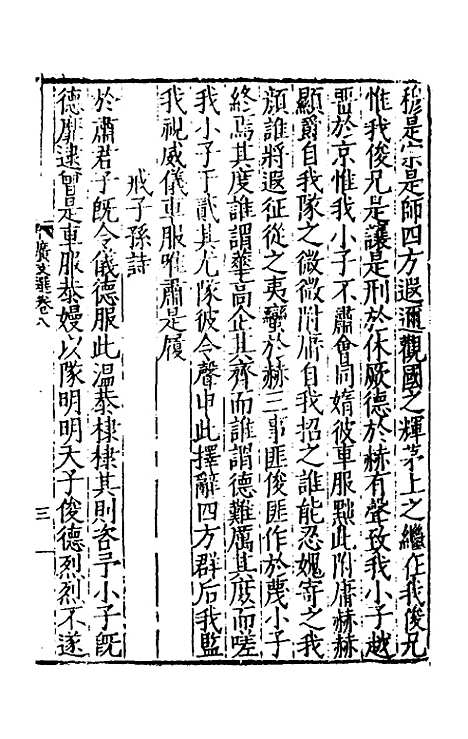 穆是宗是師四方遐邇觀國之輝茅土之繼在我俊兄
惟我俊兄是讓是刑於休厥德於赫有聲致我小子越
畱於京惟我小子不肅會同媠彼車服黜此附庸赫赫
顯爵自我隊之微微附庸自我招之誰能忍媿寄之我
顔誰將遐征從之夷蠻於赫三事匪俊匪作於蔑小子
終焉其度誰謂華高企其齊而誰謂德難厲其庶而嗟
我小子于貳其尤隊彼令聲申此擇辭四方群后我監
我視威儀車服唯肅是履
戒子孫詩
於肅君子既令儀德服此温恭棣棣其則咨予小子既
德靡逮曾是車服恭嫚以隊明明天子俊德烈烈不遂
廣文選卷八
三